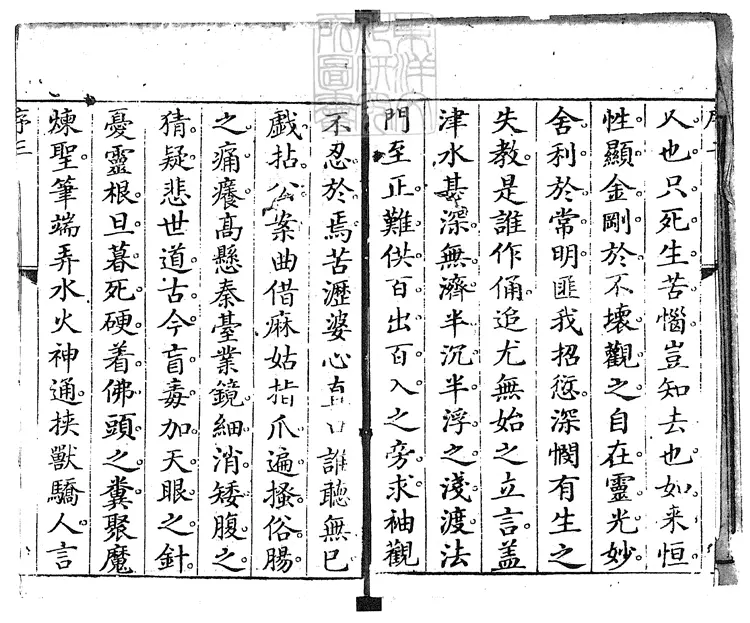 人也只死生苦惱豈知去也如来恒
性顯金剛於不壞觀之自在靈光妙
舍利於常明匪我招愆深憫有生之
失教是誰作俑追尤無始之立言盖
津水甚深無濟半沉半浮之淺渡法
門至正難供百出百入之旁求袖觀
不忍於焉苦瀝婆心 誰聽無已
戲拈公案曲借麻姑指爪遍搔俗腸
之痛癢高懸秦臺業鏡細消矮腹之
猜疑悲世道古今盲毒加天眼之針
憂靈根旦暮死硬着佛頭之糞聚魔
煉聖筆端弄水火神通挾獸驕人言
序三